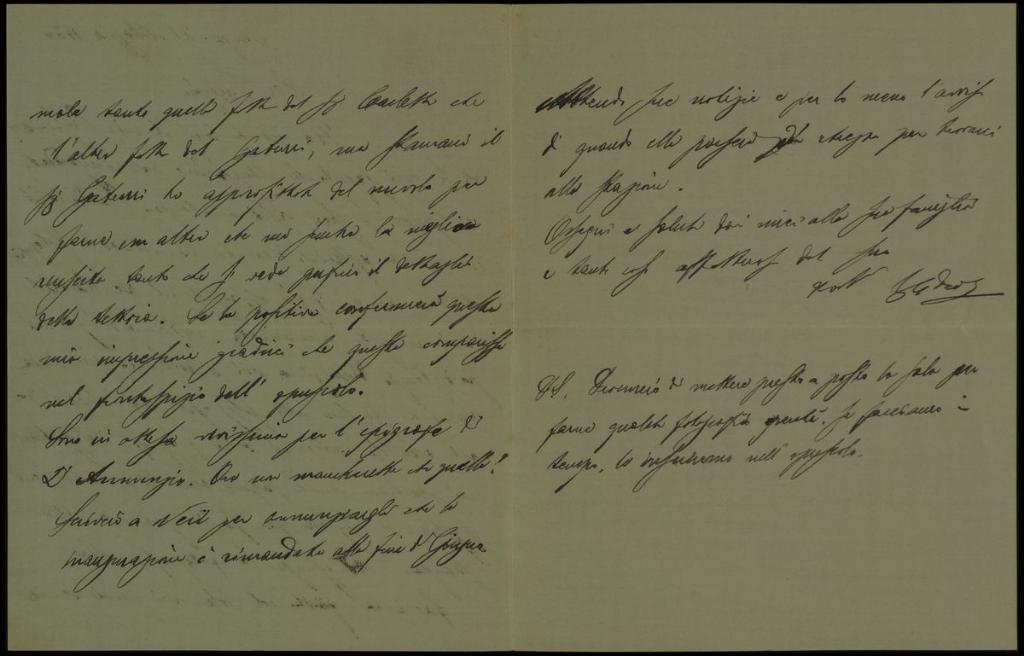 male tanto quella fatta dal Sig Carletti che
l'altra fatta dal Gaturri, ma stamani il
Sig Gaturri ha approfittato del nuvolo per
farne un'altra che mi sembra la migliore
riuscita, tanto che si vede perfino il dettaglio
della Vittoria. Se la positiva confermerà questa
mia impressione gradirei che questa comparisse
nel frontespizio dell'opuscolo.
Sono in attesa vivissima per l'epigrafe di
D'Annunzio. Ora non mancherebbe che quella!
Scriverò a per annunziargli che la
inaugurazione è rimandata alla fine di Giugno
Attendo sue notizie e per lo meno l'avviso
di quando ella passerà di per trovarci
alla stazione.
Ossequi e saluti dai miei alla sua famiglia
e tanti cosi affettuosi dal suo
PS. Procurerò di mettere presto a posto la sala per
farne qualche fotografia. Se facciamo in
tempo, le inseriremo nell'opuscolo.